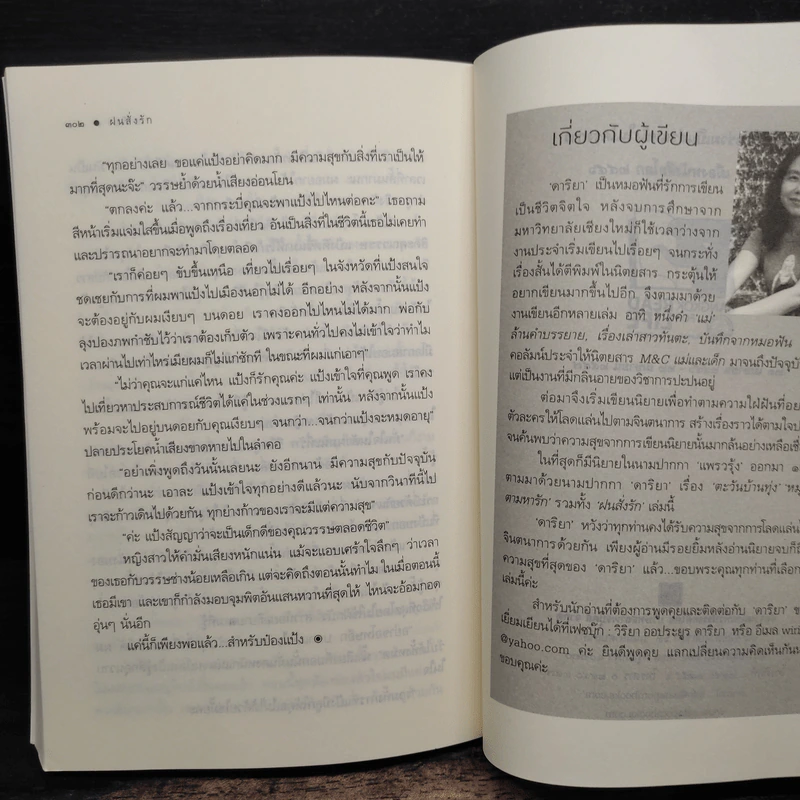 ๓๐๒ ● ฝนสั่งรัก
“ทุกอย่างเลย ขอแค่แป้งอย่าคิดมาก มีความสุขกับสิ่งที่เราเป็นให้
มากที่สุดนะจ๊ะ” วรรษย้ำด้วยน้ำเสียงอ่อนโยน
“ตกลงค่ะ แล้ว...จากกระบี่คุณจะพาแป้งไปไหนต่อคะ” เธอถาม
สีหน้าเริ่มแจ่มใสขึ้นเมื่อพูดถึงเรื่องเที่ยว อันเป็นสิ่งที่ในชีวิตนี้เธอไม่เคยทำ
และปรารถนาอยากจะทำมาโดยตลอด
“เราก็ค่อยๆ ขับขึ้นเหนือ เที่ยวไปเรื่อยๆ ในจังหวัดที่แป้งสนใจ
ชดเชยกับการที่ผมพาแป้งไปเมืองนอกไม่ได้ อีกอย่าง หลังจากนั้นแป้ง
จะต้องอยู่กับผมเงียบๆ บนดอย เราคงออกไปไหนไม่ได้มาก พ่อกับ
ลุงปองภพกำชับไว้ว่าเราต้องเก็บตัว เพราะคนทั่วไปคงไม่เข้าใจว่าทำไม
เวลาผ่านไปเท่าไหร่เมียผมก็ไม่แก่ซักที ในขณะที่ผมแก่เอาๆ”
“ไม่ว่าคุณจะแก่แค่ไหน แป้งก็รักคุณค่ะ แป้งเข้าใจที่คุณพูด เราคง
ไปเที่ยวหาประสบการณ์ชีวิตได้แค่ในช่วงแรกๆ เท่านั้น หลังจากนั้นแป้ง
พร้อมจะไปอยู่บนดอยกับคุณเงียบๆ จนกว่า...จนกว่าแป้งจะหมดอายุ”
ปลายประโยคน้ำเสียงขาดหายไปในลำคอ
“อย่าเพิ่งพูดถึงวันนั้นเลยนะ ยังอีกนาน มีความสุขกับปัจจุบัน
ก่อนดีกว่านะ เอาละ แป้งเข้าใจทุกอย่างดีแล้วนะ นับจากวินาทีนี้ไป
เราจะก้าวเดินไปด้วยกัน ทุกย่างก้าวของเราจะมีแต่ความสุข”
“ค่ะ แป้งสัญญาว่าจะเป็นเด็กดีของคุณวรรษตลอดชีวิต”
หญิงสาวให้คำมั่นเสียงหนักแน่น แม้จะแอบเศร้าใจลึกๆ ว่าเวลา
ของเธอกับวรรษช่างน้อยเหลือเกิน แต่จะคิดถึงตอนนั้นทำไม ในเมื่อตอนนี้
เธอมีเขา และเขาก็กำลังมอบจุมพิตอันแสนหวานที่สุดให้ ไหนจะอ้อมกอด
อุ่นๆ นั่นอีก
แค่นี้ก็เพียงพอแล้ว...สำหรับป้องแป้ง ◉
เกี่ยวกับผู้เขียน
‘ดาริยา’ เป็นหมอฟันที่รักการเขียน
เป็นชีวิตจิตใจ หลังจบการศึกษาจาก
มหาวิทยาลัยเชียงใหม่ก็ใช้เวลาว่างจาก
งานประจำเริ่มเขียนไปเรื่อยๆ จนกระทั่ง
เรื่องสั้นได้ตีพิมพ์ในนิตยสาร กระตุ้นให้
อยากเขียนมากขึ้นไปอีก จึงตามมาด้วย
งานเขียนอีกหลายเล่ม อาทิ หนึ่งคำ ‘แม่’
ล้านคำบรรยาย, เรื่องเล่าสาวทันตะ, บันทึกจากหมอฟัน
คอลัมน์ประจำให้นิตยสาร M&C แม่และเด็ก มาจนถึงปัจจุบั
แต่เป็นงานที่มีกลิ่นอายของวิชาการปะปนอยู่
ต่อมาจึงเริ่มเขียนนิยายเพื่อทำตามความใฝ่ฝันที่อย
ตัวละครให้โลดแล่นไปตามจินตนาการ สร้างเรื่องราวได้ตามใจป
จนค้นพบว่าความสุขจากการเขียนนิยายนั้นมากล้นอย่างเหลือเชื่
ในที่สุดก็มีนิยายในนามปากกา ‘แพรวรุ้ง’ ออกมา ๑
ตามมาด้วยนามปากกา ‘ดาริยา’ เรื่อง ‘ตะวันบ้านทุ่ง’ ‘หม
ตามหารัก’ รวมทั้ง ‘ฝนสั่งรัก’ เล่มนี้
‘ดาริยา’ หวังว่าทุกท่านคงได้รับความสุขจากการโลดแล่น
จินตนาการด้วยกัน เพียงผู้อ่านมีรอยยิ้มหลังอ่านนิยายจบก็ถื
ความสุขที่สุดของ ‘ดาริยา’ แล้ว...ขอบพระคุณทุกท่านที่เลือก
เล่มนี้ค่ะ
สำหรับนักอ่านที่ต้องการพูดคุยและติดต่อกับ ‘ดาริยา’ ข
เยี่ยมเยียนได้ที่เฟซบุ๊ก : วิริยา ออประยูร ดาริยา หรือ อีเมล
@yahoo.com ค่ะ ยินดีพูดคุย แลกเปลี่ยนความคิดเห็นกัน
ขอบคุณค่ะ